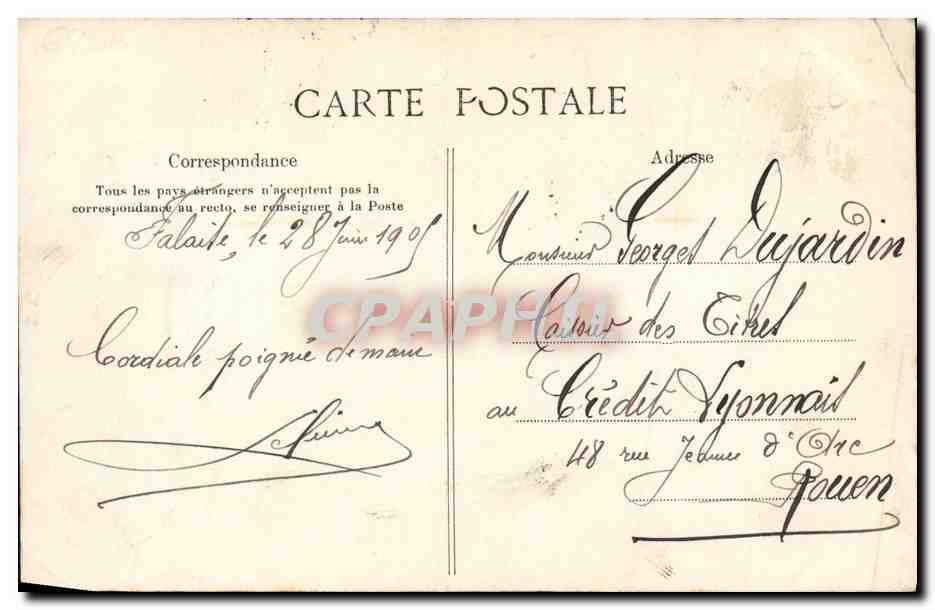 CARTE POSTALE
Correspondance
Tous les pays étrangers n'acceptent pas la
correspondance au recto, se renseigner à la Poste
Falaise, le 28 Juin 1905
Cordiale poignée de main
Adresse
Monsieur Georges Dujardin
Caissier des Titres
au Crédit Lyonnais
48 rue Jeanne d'Arc
Rouen
CPARAMA